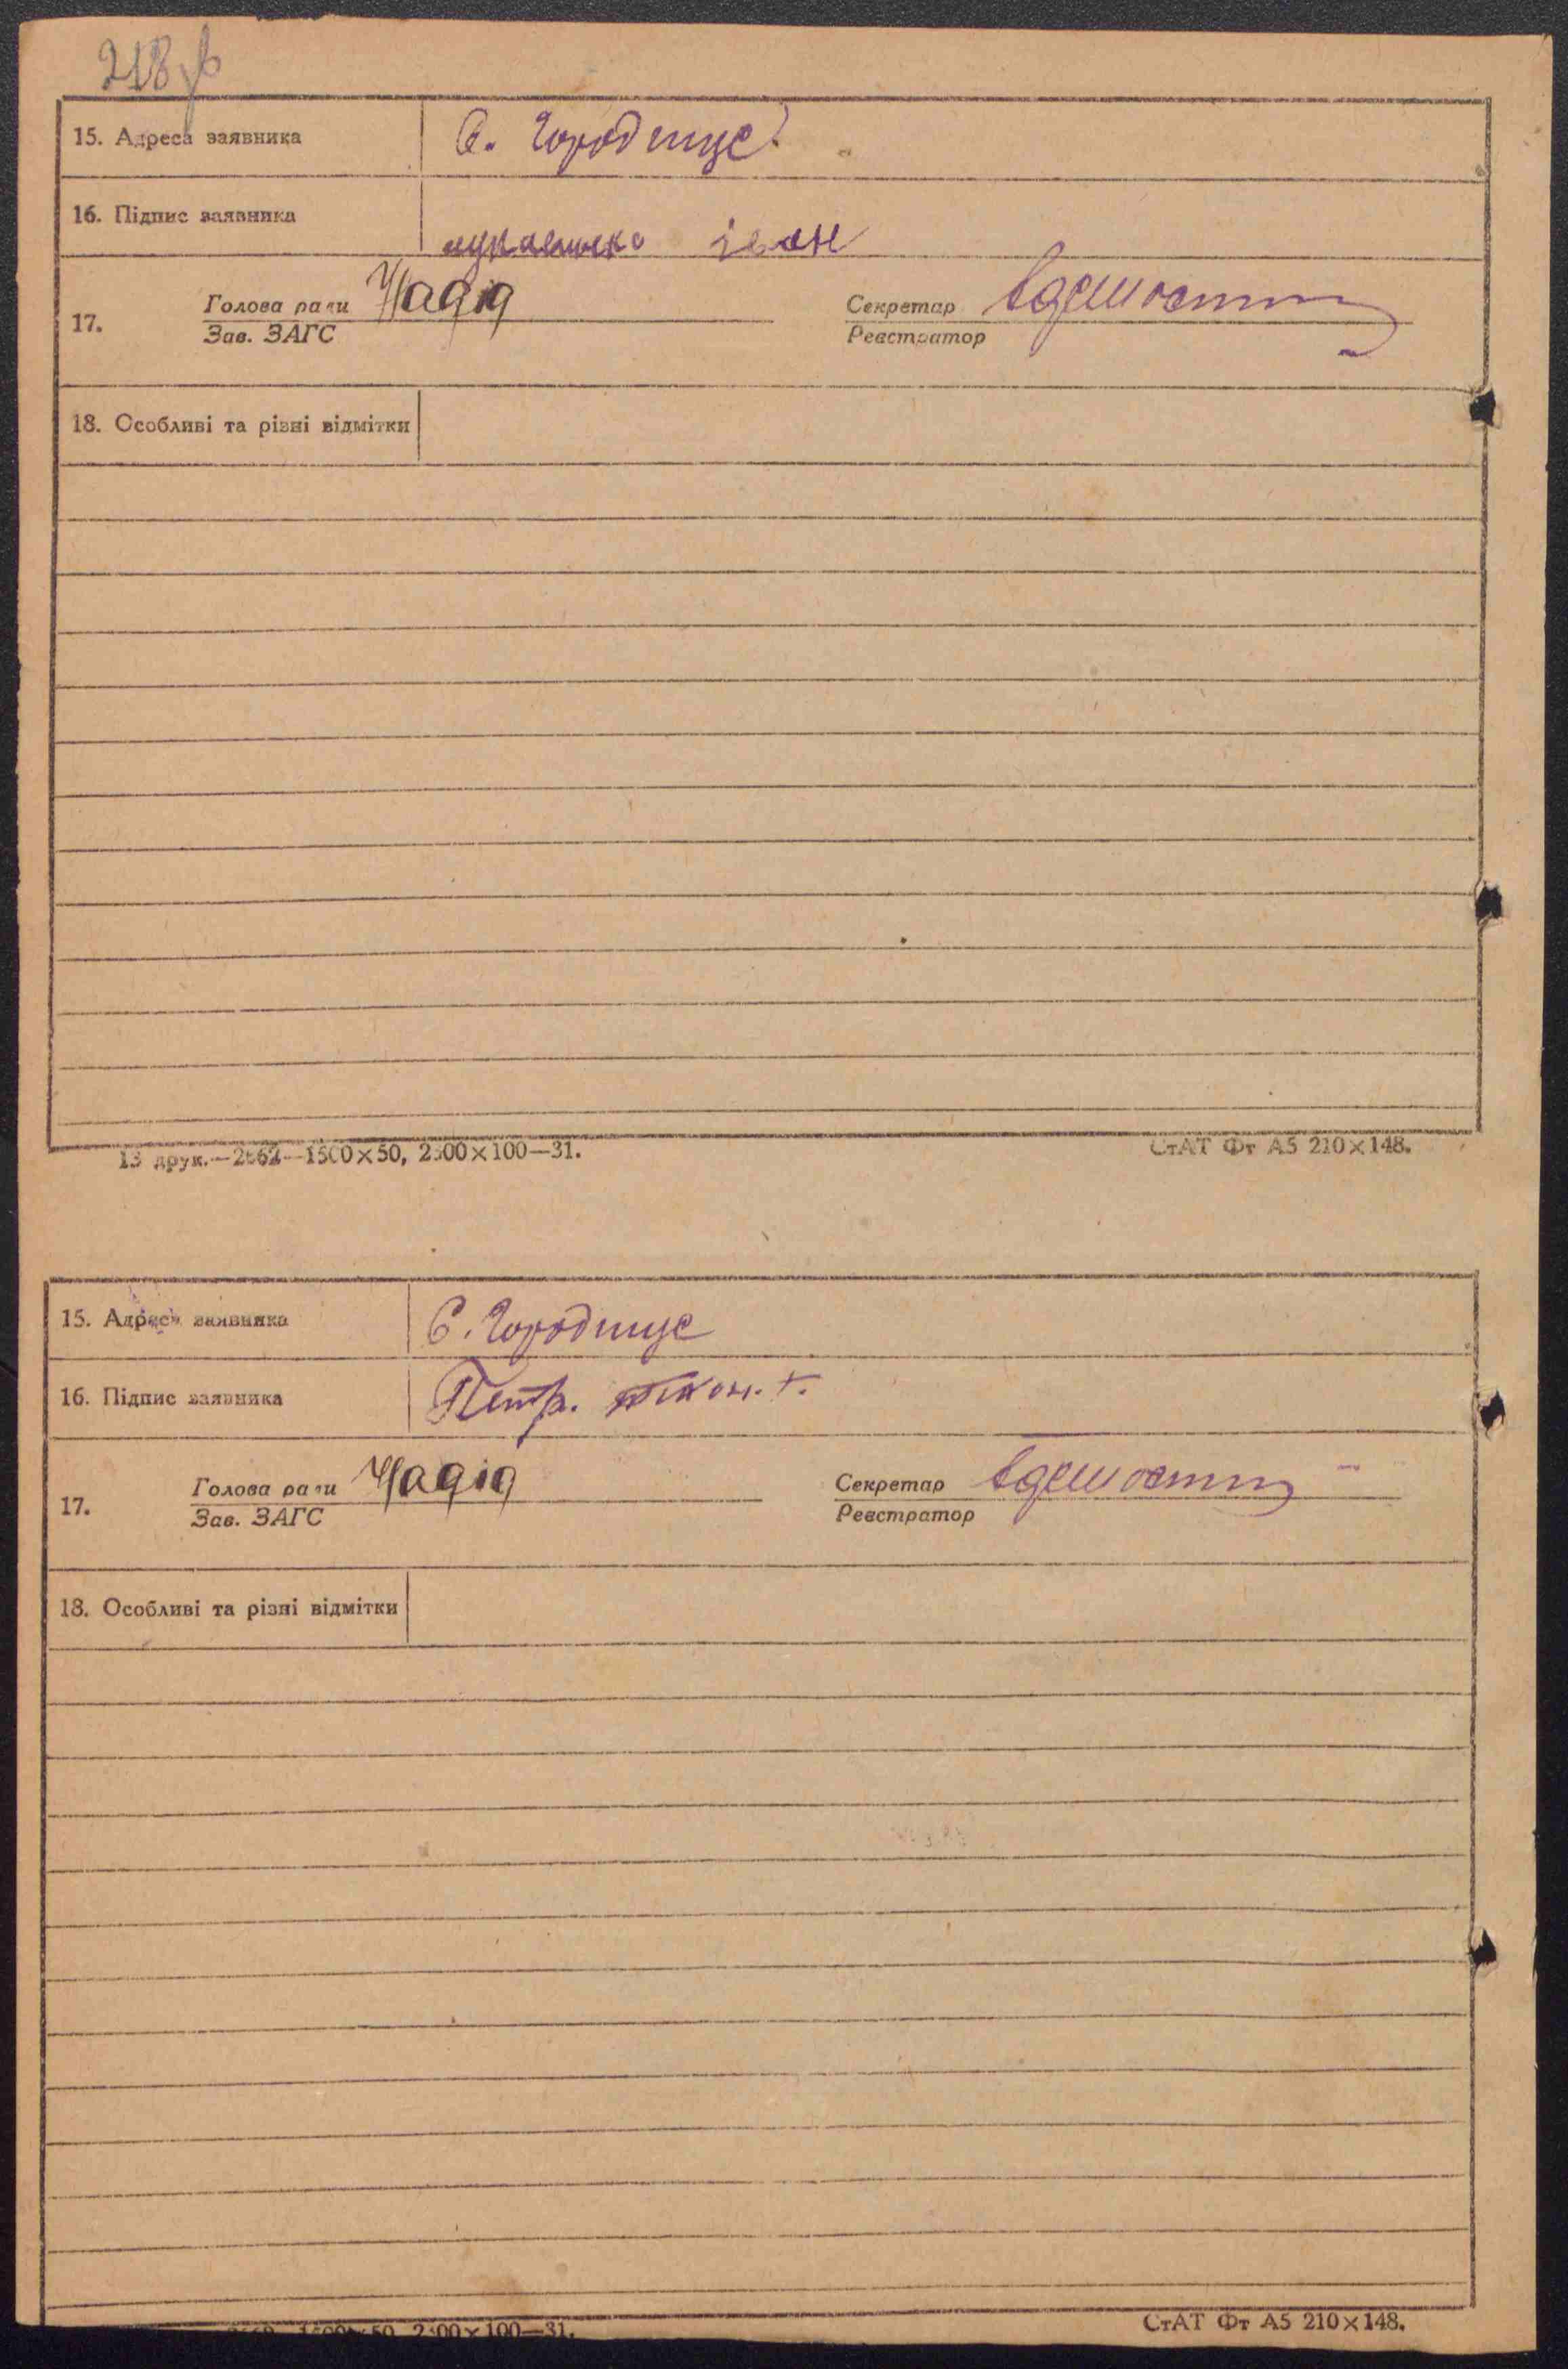 218
15. Адреса заявника С. Городище
16. Підпис заявника Іван
17. Голова ради Секретар
Зав. ЗАГС Реєстратор
18. Особливі та різні відмітки
13 друк.—2662—1500×50, 2500×100—31. СтАТ Фт А5 210×148.
15. Адреса заявника С. Городище
16. Підпис заявника Петр.
17. Голова ради Секретар
Зав. ЗАГС Реєстратор
18. Особливі та різні відмітки
2662—1500×50, 2500×100—31. СтАТ Фт А5 210×148.